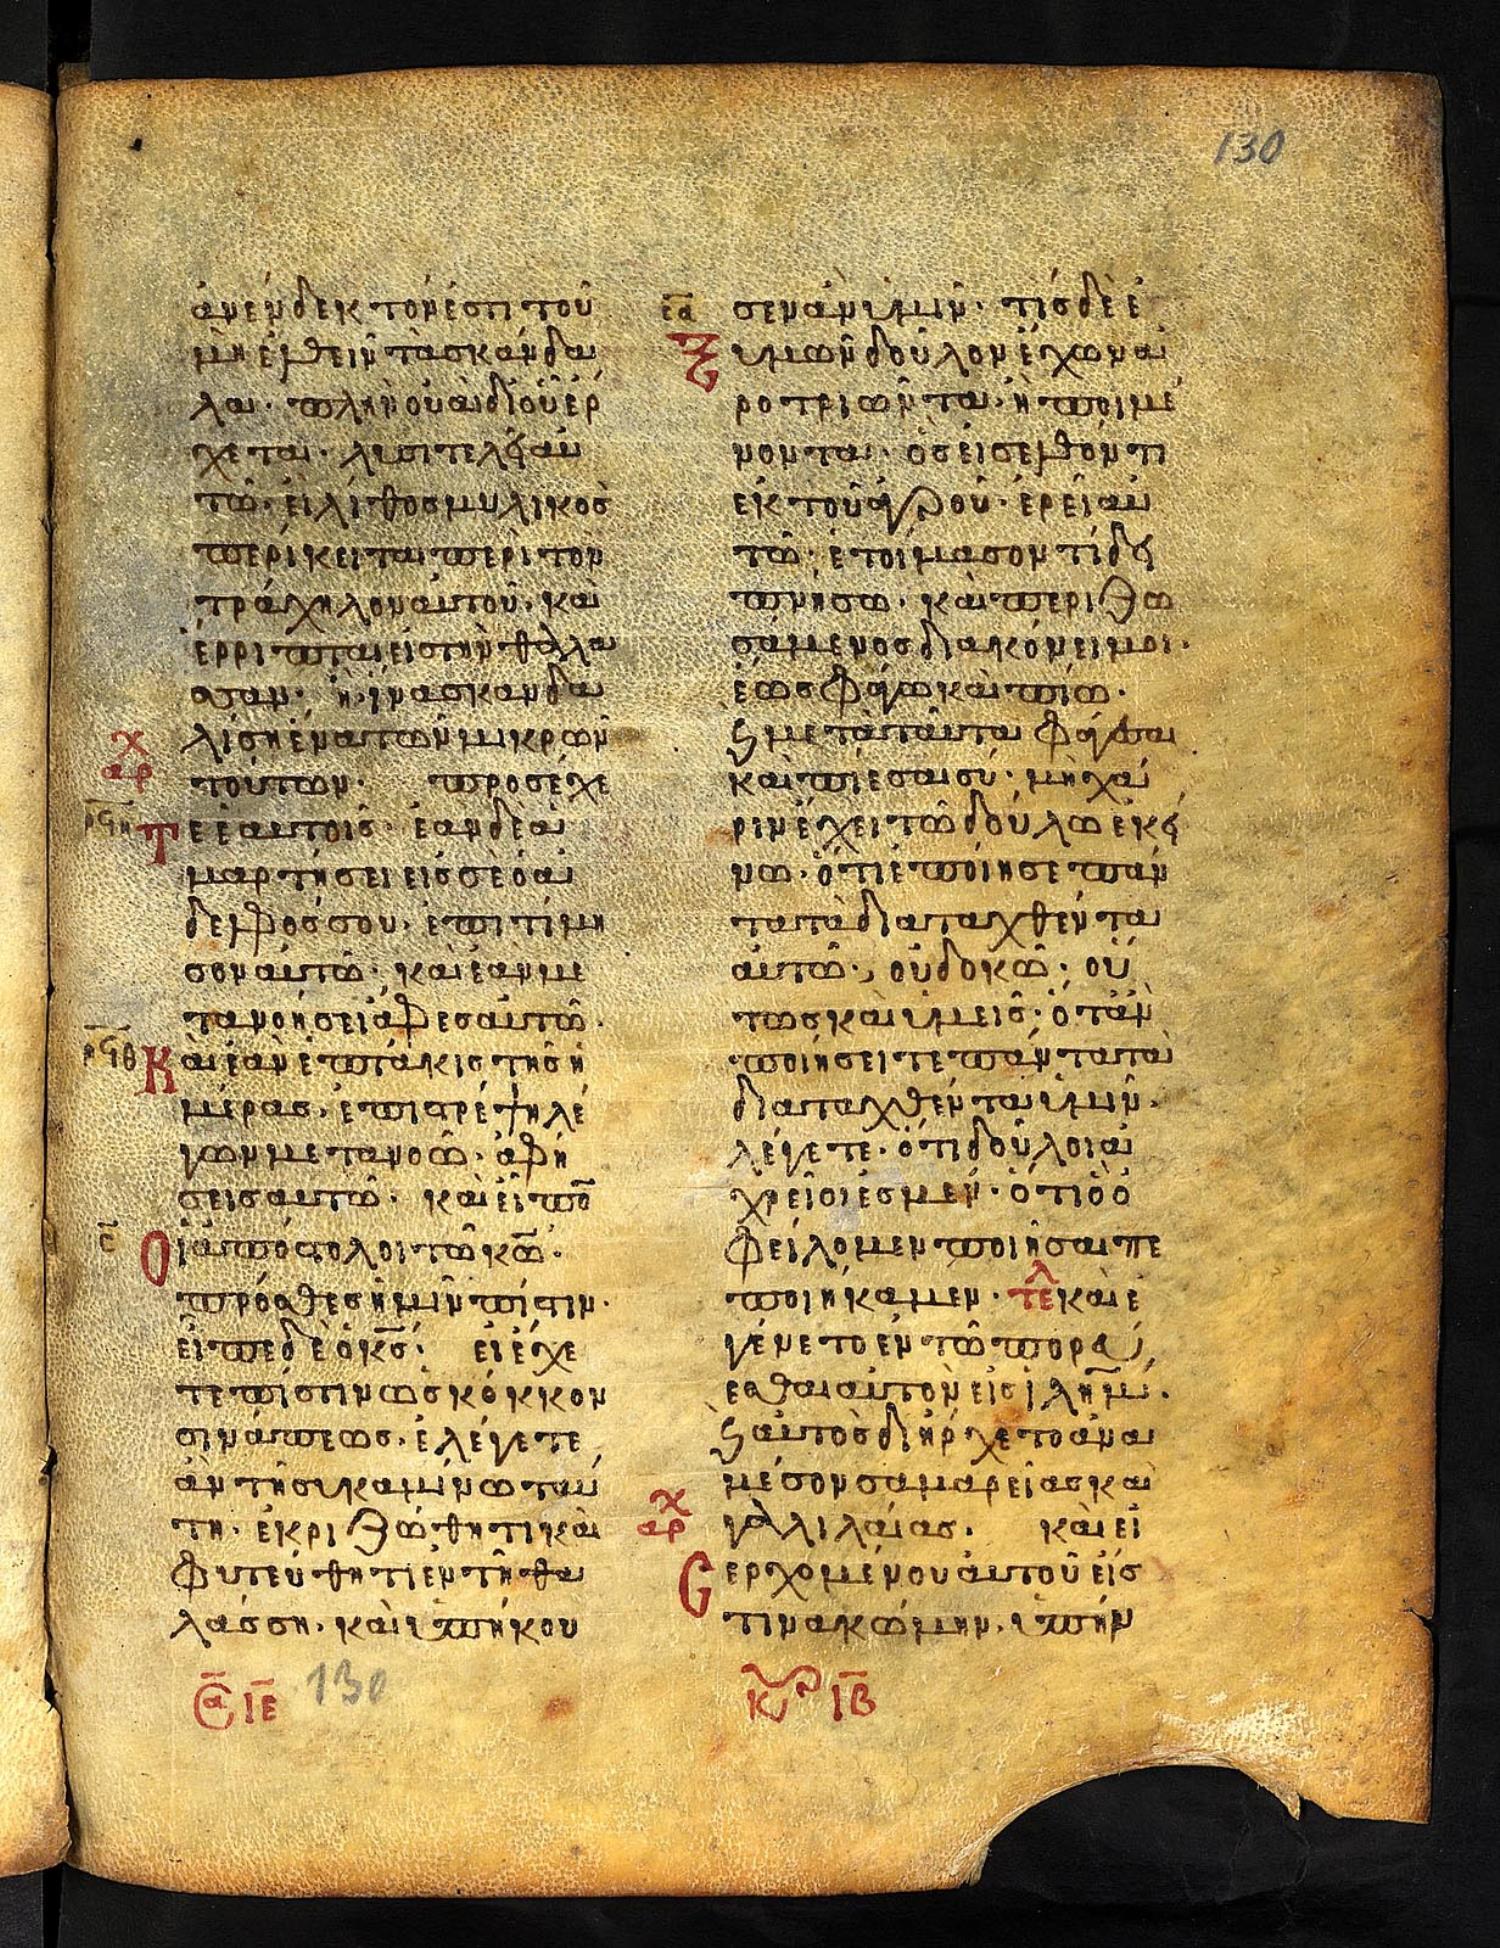 130
ἀνένδεκτόν ἐστι τοῦ
μὴ ἐλθεῖν τὰ σκάνδα
λα· πλὴν οὐαὶ δι' οὗ ἔρ
χεται· λυσιτελεῖ αὐ
τῶ· εἰ λίθος μυλικὸς
περίκειται περὶ τὸν
τράχηλον αὐτοῦ· καὶ
ἔρριπται εἰς τὴν θάλα
σσαν· ἢ ἵνα σκανδα
λίση ἕνα τῶν μικρῶν
χ
αρ
τούτων· προσέχε
ρϟη
τε ἑαυτοῖς· ἐὰν δὲ ἁ
μαρτήσει εἰς σὲ ὁ ἀ
δελφός σου· ἐπιτίμη
σον αὐτῶ· καὶ ἐὰν με
τανοήσει ἄφες αὐτῶ·
ρϟθ
Καὶ ἐὰν ἑπτάκις τῆς ἡ
μέρας· ἐπιστρέψη λέ
γων μετανοῶ· ἀφή
σεις αὐτῶ· καὶ εἶπο
σ
Οἱ ἀπόστολοι τῶ κ̅ω̅·
πρόσθες ἡμῖν πίστιν·
εἶπε δὲ ὁ κ̅ς̅· εἰ ἔχε
τε πίστιν ὡς κόκκον
σινάπεως· ἐλέγετε
ἂν τῆ συκαμίνω ταύ
τη· ἐκριζώθητι καὶ
φυτεύθητι ἐν τῆ θα
λάσση· καὶ ὑπήκου
ϲα ιε 130
σα
σεν ἂν ὑμῖν· τίς δὲ ἐ
ξ ὑμῶν δοῦλον ἔχων ἀ
ροτριῶντα· ἢ ποιμέ
νοντα· ὃς εἰσελθόντι
ἐκ τοῦ ἀγροῦ· ἐρεῖ αὐ
τῶ· ἑτοίμασον τί δει
πνήσω· καὶ περιζω
σάμενος διακόνει μοι·
ἕως φάγω καὶ πίω·
ϗ μετὰ ταῦτα φάγεσαι
καὶ πίεσαι σύ· μὴ χά
ριν ἔχει τῶ δούλω ἐκεί
νω· ὅτι ἐποίησε πάν
τα τὰ διαταχθέντα
αὐτῶ· οὐ δοκῶ· οὕ
τως καὶ ὑμεῖς· ὅταν
ποιήσειτε πάντα τὰ
διαταχθέντα ὑμῖν·
λέγετε· ὅτι δοῦλοι ἀ
χρεῖοί ἐσμεν· ὅτι ὃ ὀ
φείλομεν ποιῆσαι πε
ποιήκαμεν· τελ καὶ ἐ
γένετο ἐν τῶ πορεύ
εσθαι αὐτὸν εἰς ἰλημ̅·
ϗ αὐτὸς διήρχετο ἀνὰ
μέσον σαμαρείας καὶ
χ
αρ
γαλιλαίας· καὶ εἰ
σερχομένου αὐτοῦ εἴς
τινα κώμην· ὑπήν
κυρ ιβ